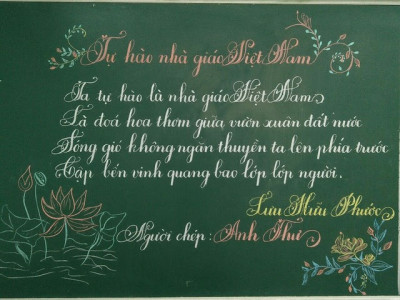 Tự hào nhà giáo Việt Nam
Ta tự hào là nhà giáo Việt Nam
Là đoá hoa thơm giữa vườn xuân đất nước
Sóng gió không ngăn thuyền ta lên phía trước
Cập bến vinh quang bao lớp lớp người.
Lưu Hữu Phước
Người chép: Anh Thư